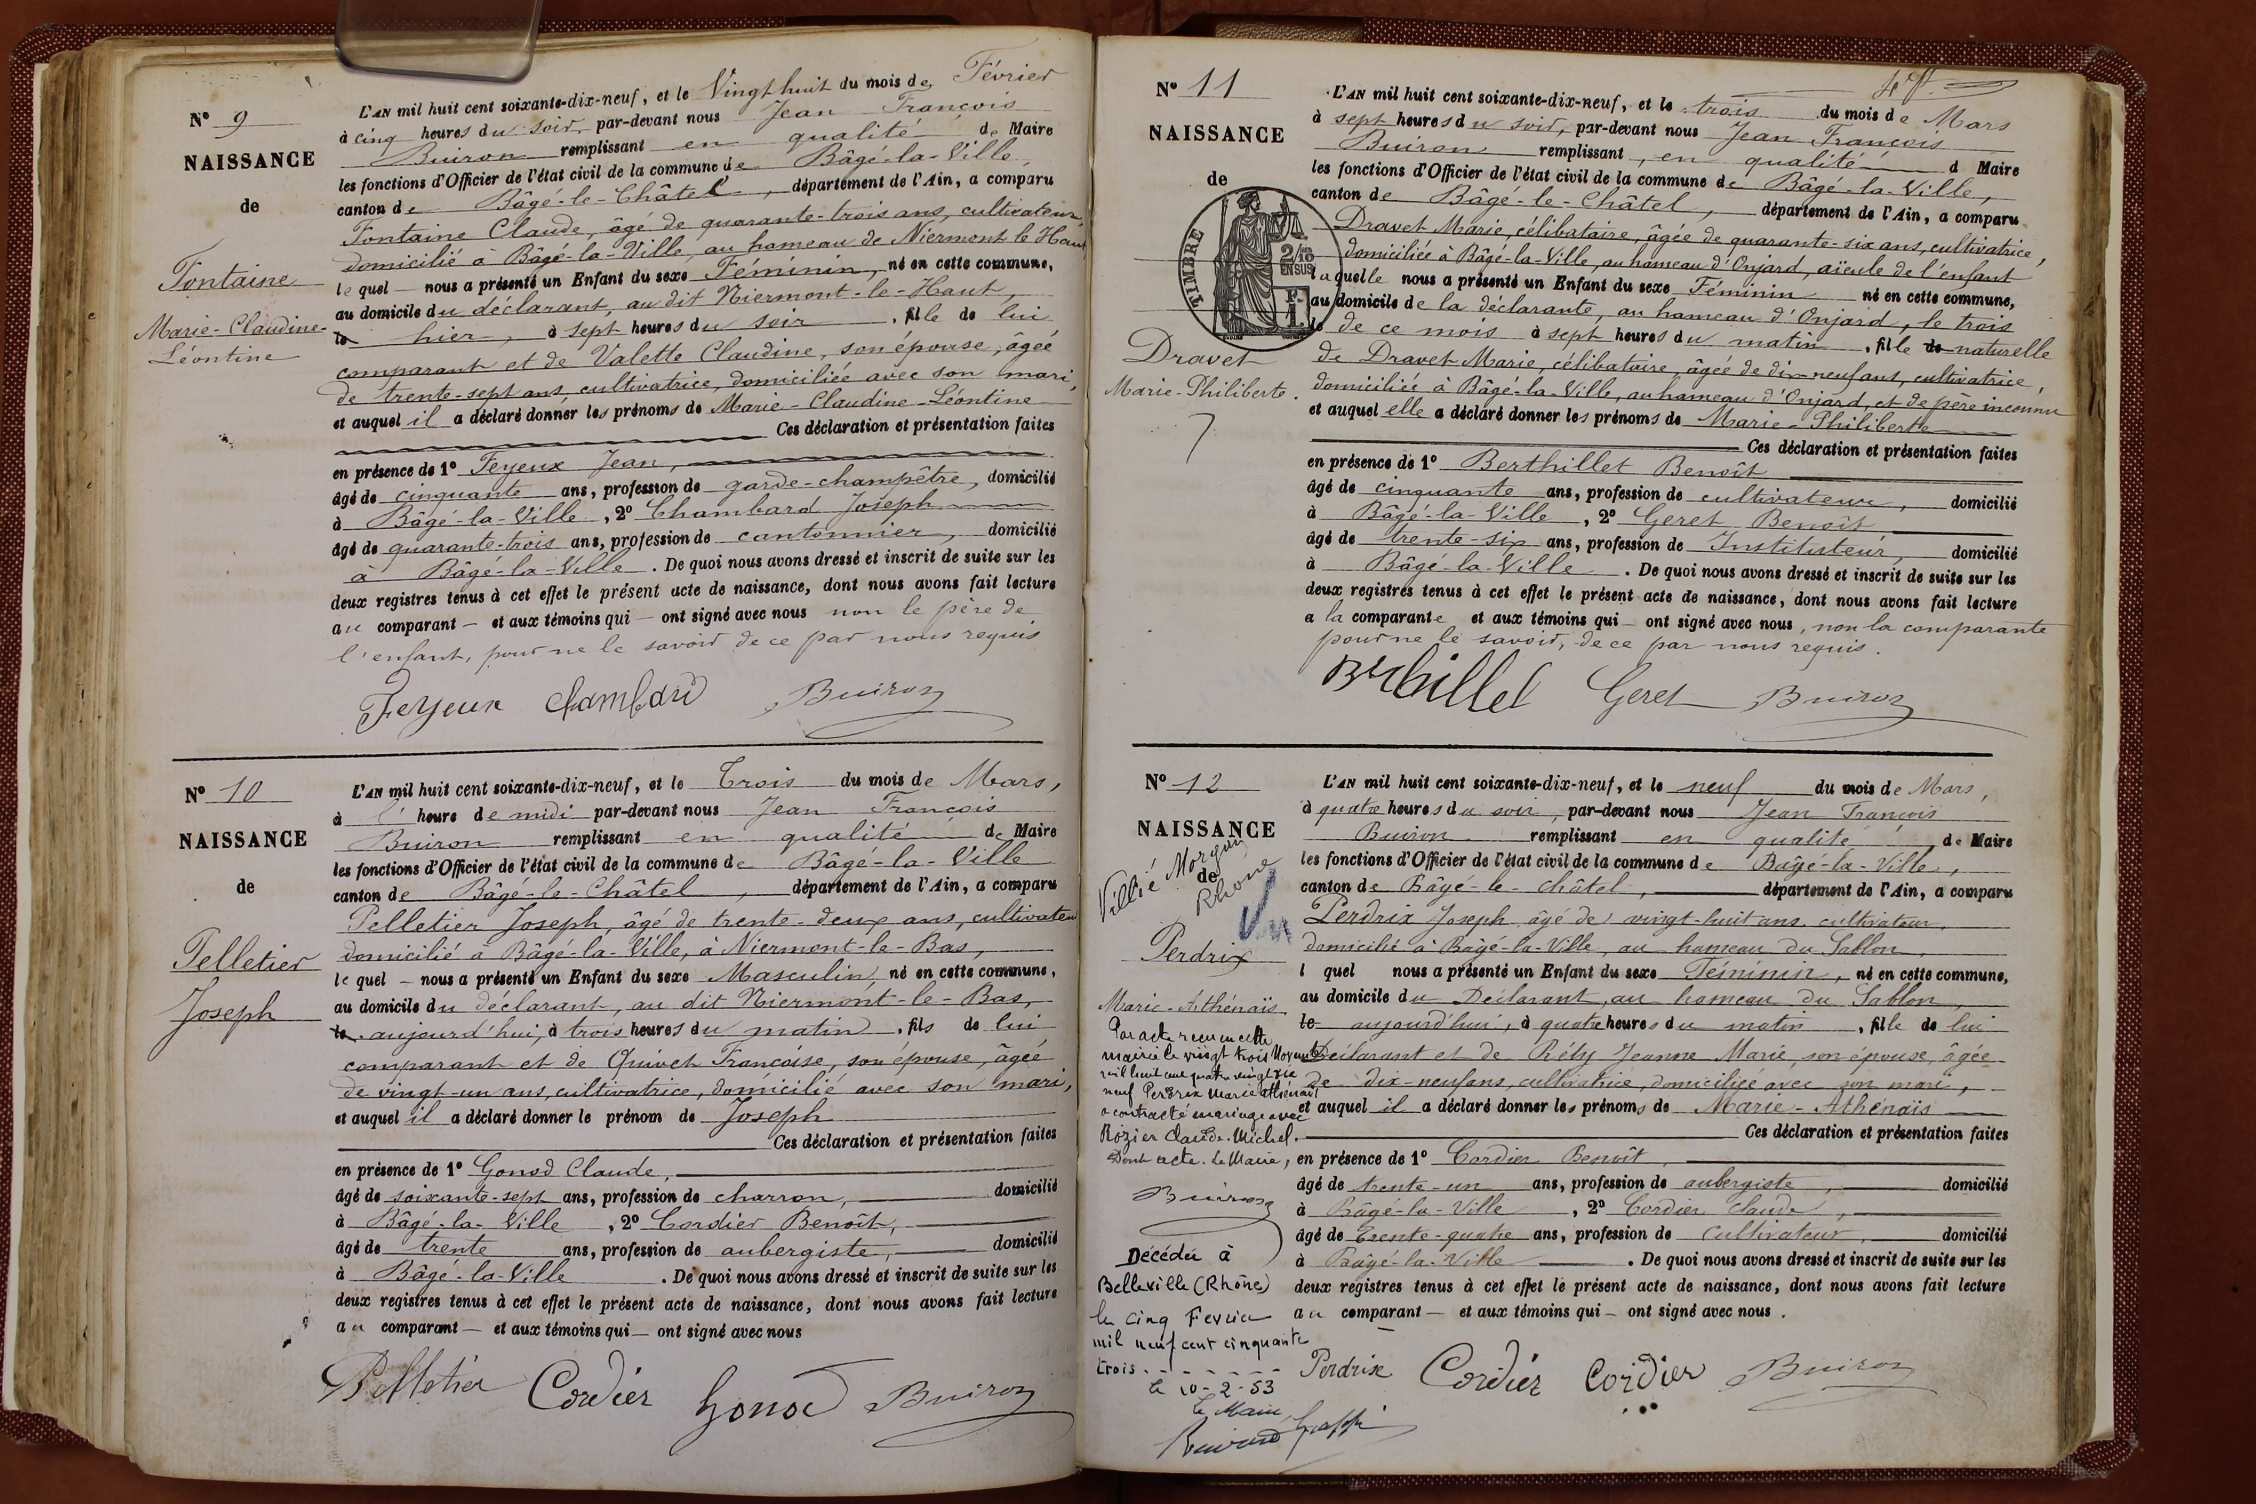 N° 9
NAISSANCE
de
Fontaine
Marie-Claudine-
Léontine
L'AN mil huit cent soixante-dix-neuf, et le Vingt huit du mois de Février
à cinq heures du soir, par-devant nous Jean François
Buiron remplissant en qualité de Maire
les fonctions d'Officier de l'état civil de la commune de Bâgé-la-Ville,
canton de Bâgé-le-Châtel, département de l'Ain, a comparu
Fontaine Claude, âgé de quarante-trois ans, cultivateur,
domicilié à Bâgé-la-Ville, au hameau de Niermont le Haut
lequel — nous a présenté un Enfant du sexe Féminin, né en cette commune,
au domicile du déclarant, au dit Niermont-le-Haut,
le hier, à sept heures du soir, fille de lui
comparant et de Valette Claudine, son épouse, âgée
de trente-sept ans, cultivatrice, domiciliée avec son mari,
et auquel il a déclaré donner les prénoms de Marie-Claudine-Léontine
Ces déclaration et présentation faites
en présence de 1° Feyeux Jean,
âgé de cinquante ans, profession de garde-champêtre, domicilié
à Bâgé-la-Ville, 2° Chambard Joseph
âgé de quarante-trois ans, profession de cantonnier, domicilié
à Bâgé-la-Ville. De quoi nous avons dressé et inscrit de suite sur les
deux registres tenus à cet effet le présent acte de naissance, dont nous avons fait lecture
au comparant — et aux témoins qui — ont signé avec nous non le père de
l'enfant, pour ne le savoir de ce par nous requis
Feyeux Chambard Buiron
N° 10
NAISSANCE
de
Pelletier
Joseph
L'AN mil huit cent soixante-dix-neuf, et le Trois du mois de Mars,
à l' heure de midi par-devant nous Jean François
Buiron remplissant en qualité de Maire
les fonctions d'Officier de l'état civil de la commune de Bâgé-la-Ville
canton de Bâgé-le-Châtel, département de l'Ain, a comparu
Pelletier Joseph, âgé de trente-deux ans, cultivateur
domicilié à Bâgé-la-Ville, à Niermont-le-Bas,
lequel — nous a présenté un Enfant du sexe Masculin, né en cette commune,
au domicile du déclarant, au dit Niermont-le-Bas,
le aujourd'hui, à trois heures du matin, fils de lui
comparant et de Quivet Françoise, son épouse, âgée
de vingt-un ans, cultivatrice, domicilié avec son mari,
et auquel il a déclaré donner le prénom de Joseph
Ces déclaration et présentation faites
en présence de 1° Gonod Claude,
âgé de soixante-sept ans, profession de charron, domicilié
à Bâgé-la-Ville, 2° Cordier Benoît,
âgé de trente ans, profession de aubergiste, domicilié
à Bâgé-la-Ville. De quoi nous avons dressé et inscrit de suite sur les
deux registres tenus à cet effet le présent acte de naissance, dont nous avons fait lecture
au comparant — et aux témoins qui — ont signé avec nous
Pelletier Cordier Gonod Buiron
N° 11
NAISSANCE
de
TIMBRE
2/10
EN SUS
Dravet
Marie-Philiberte.
L'AN mil huit cent soixante-dix-neuf, et le trois du mois de Mars
à sept heures du soir, par-devant nous Jean François
Buiron remplissant, en qualité d Maire
les fonctions d'Officier de l'état civil de la commune de Bâgé-la-Ville,
canton de Bâgé-le-Châtel, département de l'Ain, a comparu
Dravet Marie, célibataire, âgée de quarante-six ans, cultivatrice,
domiciliée à Bâgé-la-Ville, au hameau d'Onjard, aïeule de l'enfant
laquelle nous a présenté un Enfant du sexe Féminin né en cette commune,
au domicile de la déclarante, au hameau d'Onjard, le trois
le de ce mois à sept heures du matin, fille de naturelle
de Dravet Marie, célibataire, âgée de dix-neuf ans, cultivatrice,
domiciliée à Bâgé-la-Ville, au hameau d'Onjard, et de père inconnu
et auquel elle a déclaré donner les prénoms de Marie-Philiberte
Ces déclaration et présentation faites
en présence de 1° Berthillet Benoît
âgé de cinquante ans, profession de cultivateur, domicilié
à Bâgé-la-Ville, 2° Geret Benoît
âgé de trente-six ans, profession de Instituteur, domicilié
à Bâgé-la-Ville. De quoi nous avons dressé et inscrit de suite sur les
deux registres tenus à cet effet le présent acte de naissance, dont nous avons fait lecture
a la comparante et aux témoins qui — ont signé avec nous, non la comparante
pour ne le savoir, de ce par nous requis.
Berthillet Geret Buiron
N° 12
NAISSANCE
de
Villié Morgon
Rhone
Vu
Perdrix
Marie-Athénaïs
Par acte reçu en cette
mairie le vingt trois Novembre
mil huit cent quatre vingt dix
neuf Perdrix Marie Athénaïs
a contracté mariage avec
Rozier Claude-Michel.
Dont acte. Le Maire,
Buiron
Décédée à
Belleville (Rhône)
le cinq Fevrier
mil neuf cent cinquante
trois
le 10-2-53
Le Maire
L'AN mil huit cent soixante-dix-neuf, et le neuf du mois de Mars,
à quatre heures du soir, par-devant nous Jean François
Buiron remplissant en qualité de Maire
les fonctions d'Officier de l'état civil de la commune de Bâgé-la-Ville,
canton de Bâgé-le-Châtel, département de l'Ain, a comparu
Perdrix Joseph âgé de vingt-huit ans cultivateur,
domicilié à Bâgé-la-Ville, au hameau du Sablon,
l quel nous a présenté un Enfant du sexe Féminin, né en cette commune,
au domicile du Déclarant, au hameau du Sablon,
le aujourd'hui, à quatre heures du matin, fille de lui
Déclarant et de Réty Jeanne Marie, son épouse, âgée
de dix-neuf ans, cultivatrice, domiciliée avec son mari,
et auquel il a déclaré donner les prénoms de Marie-Athénaïs
Ces déclaration et présentation faites
en présence de 1° Cordier Benoît,
âgé de trente-un ans, profession de aubergiste, domicilié
à Bâgé-la-Ville, 2° Cordier Claude,
âgé de Trente-quatre ans, profession de Cultivateur, domicilié
à Bâgé-la-Ville. De quoi nous avons dressé et inscrit de suite sur les
deux registres tenus à cet effet le présent acte de naissance, dont nous avons fait lecture
au comparant — et aux témoins qui — ont signé avec nous.
Perdrix Cordier Cordier Buiron